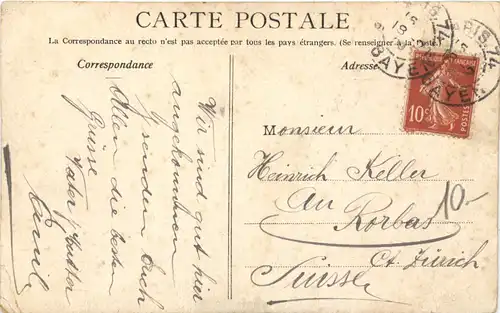 CARTE POSTALE
La Correspondance au recto n'est pas acceptée par tous les pays étrangers. (Se renseigner à la Poste)
Correspondance
Adresse
PARIS.74
BAYEN
RÉPUBLIQUE FRANÇAISE
10c
POSTES
Wir sind gut hier
angekommen
senden Euch
Allen die besten
Grüsse
Vater Mutter
Emil
Monsieur
Heinrich Keller
au Rorbas
Ct. Zürich
Suisse
10.-